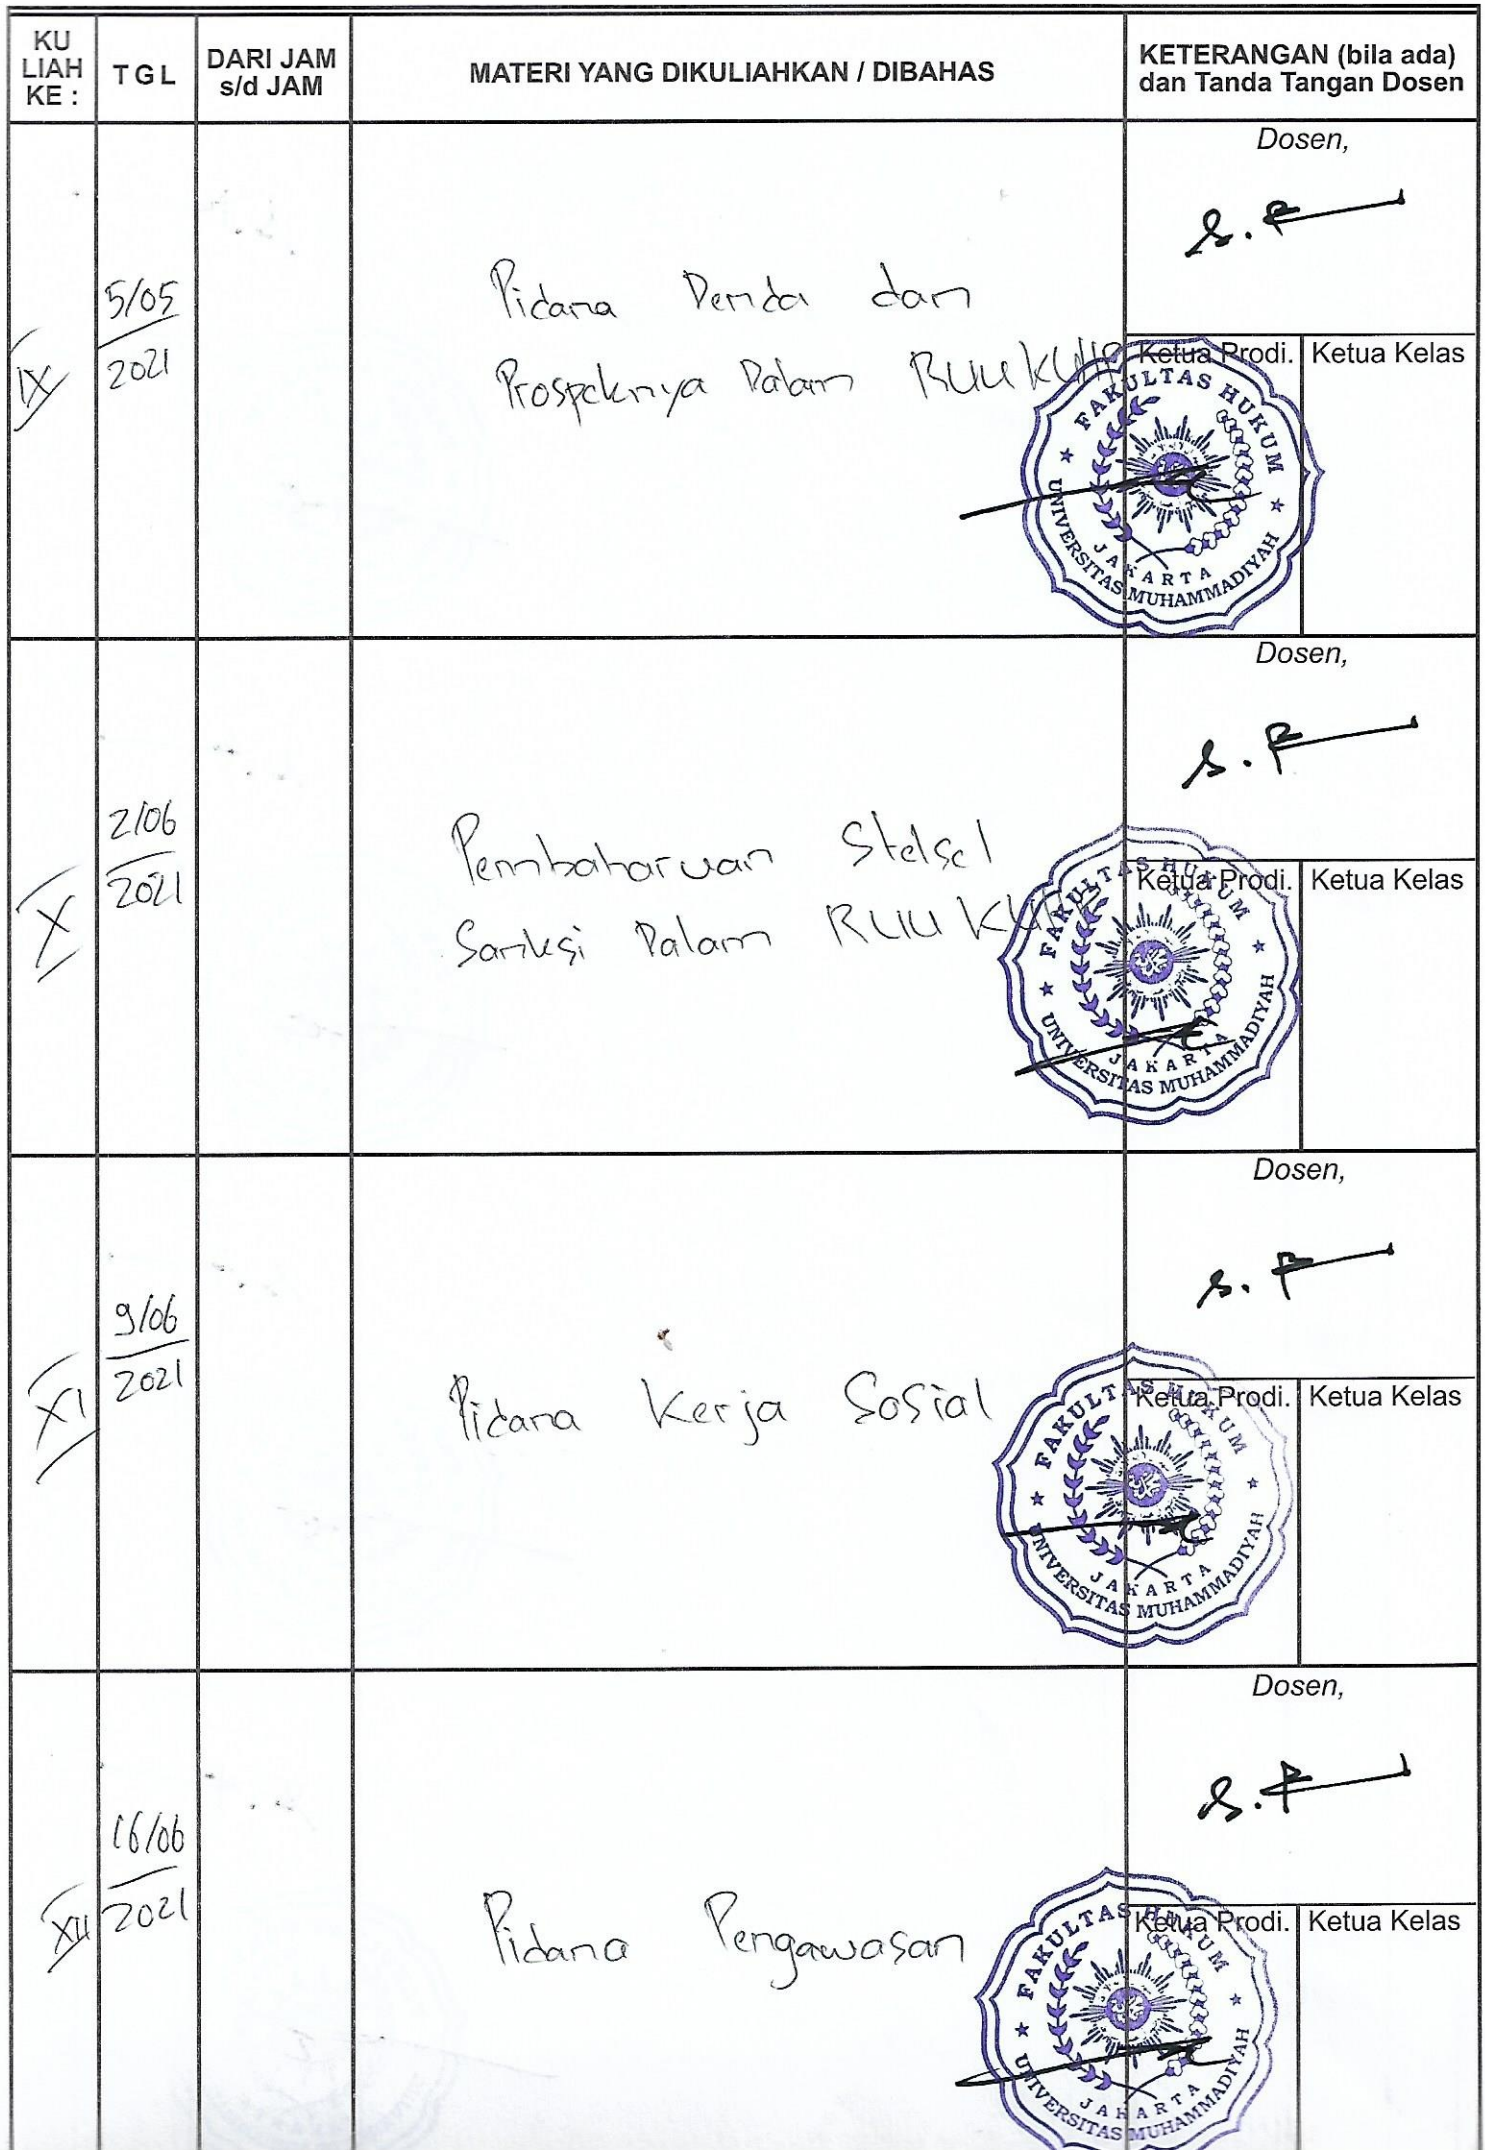 KU LIAH KE :
TGL
DARI JAM s/d JAM
MATERI YANG DIKULIAHKAN / DIBAHAS
KETERANGAN (bila ada) dan Tanda Tangan Dosen
IX
5/05
2021
Pidana Denda dan
Prospeknya Dalam RUU KUHP
Dosen,
S. F
Ketua Prodi.
Ketua Kelas
FAKULTAS HUKUM
JAKARTA
UNIVERSITAS MUHAMMADIYAH
X
2/06
2021
Pembaharuan Stelsel
Sanksi Dalam RUU KUHP
Dosen,
S. F
Ketua Prodi.
Ketua Kelas
FAKULTAS HUKUM
JAKARTA
UNIVERSITAS MUHAMMADIYAH
XI
9/06
2021
Pidana Kerja Sosial
Dosen,
S. F
Ketua Prodi.
Ketua Kelas
FAKULTAS HUKUM
JAKARTA
UNIVERSITAS MUHAMMADIYAH
XII
16/06
2021
Pidana Pengawasan
Dosen,
S. F
Ketua Prodi.
Ketua Kelas
FAKULTAS HUKUM
JAKARTA
UNIVERSITAS MUHAMMADIYAH